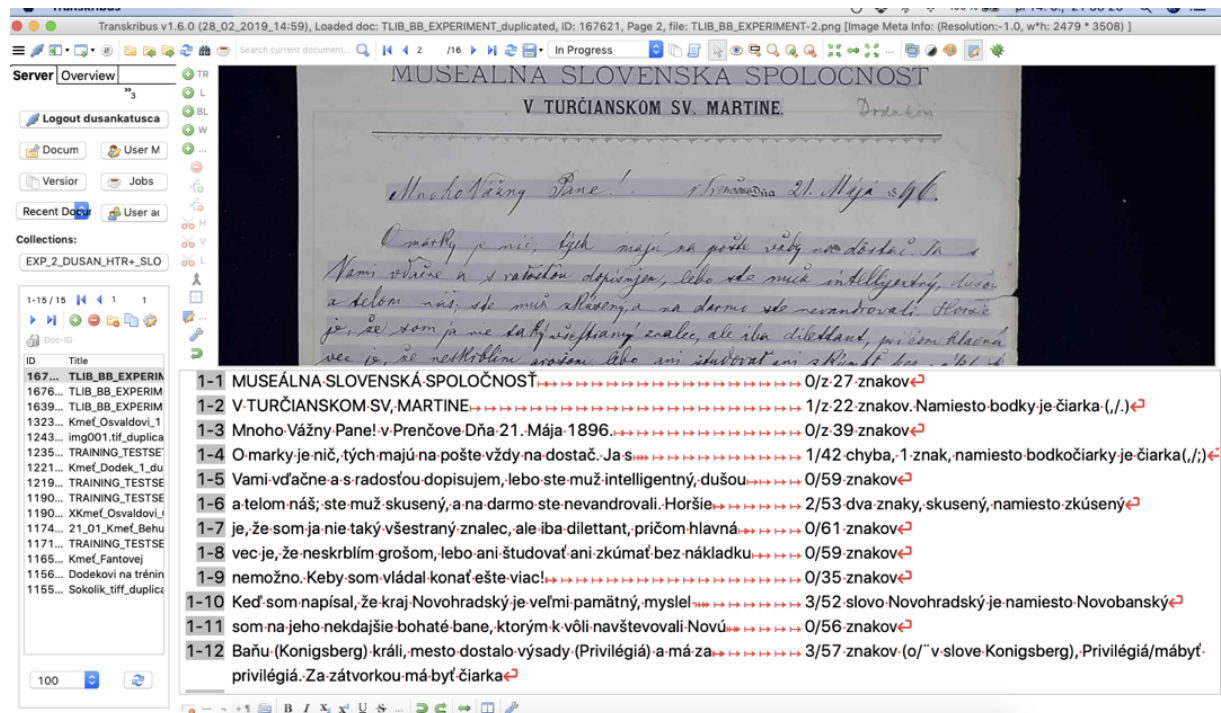 Transkribus
Transkribus v1.6.0 (28_02_2019_14:59), Loaded doc: TLIB_BB_EXPERIMENT_duplicated, ID: 167621, Page 2, file: TLIB_BB_EXPERIMENT-2.png [Image Meta Info: (Resolution:-1.0, w*h: 2479 * 3508) ]
Search current document... 2 /16 In Progress
Server Overview
"3
Logout dusankatusca
Docum User M
Versior Jobs
Recent Docur User ac
Collections:
EXP_2_DUSAN_HTR+_SLO
1-15 / 15 1 1
Doc-ID
ID Title
167... TLIB_BB_EXPERIN
1676... TLIB_BB_EXPERIM
1639... TLIB_BB_EXPERIM
1323... Kmeť_Osvaldovi_1
1243... img001.tif_duplica
1235... TRAINING_TESTSE
1221... Kmeť_Dodek_1_du
1219... TRAINING_TESTSE
1190... TRAINING_TESTSE
1190... XKmeť_Osvaldovi_
1174... 21_01_Kmeť_Behu
1171... TRAINING_TESTSE
1165... Kmeť_Fantovej
1156... Dodekovi na trénin
1155... Sokolik_tiff_duplica
100
TR
L
BL
W
...
H
V
L
MUSEÁLNA SLOVENSKÁ SPOLOČNOSŤ
V TURČIANSKOM SV. MARTINE.
Mnoho Vážny Pane! v Prenčove Dňa 21. Mája 1896.
O marky je nič; tých majú na pošte vždy na dostač. Ja s
Vami vďačne a s radosťou dopisujem, lebo ste muž intelligentný, dušou
a telom náš; ste muž zkúsený, a na darmo ste nevandrovali. Horšie
je, že som ja nie taký všestraný znalec, ale iba dilettant, pričom hlavná
vec je, že neskrblím grošom, lebo ani študovať ani zkúmať bez nákladku
1-1 MUSEÁLNA SLOVENSKÁ SPOLOČNOSŤ 0/z 27 znakov
1-2 V TURČIANSKOM SV, MARTINE 1/z 22 znakov. Namiesto bodky je čiarka (,/.)
1-3 Mnoho Vážny Pane! v Prenčove Dňa 21. Mája 1896. 0/z 39 znakov
1-4 O marky je nič, tých majú na pošte vždy na dostač. Ja s 1/42 chyba, 1 znak, namiesto bodkočiarky je čiarka(,/;)
1-5 Vami vďačne a s radosťou dopisujem, lebo ste muž intelligentný, dušou 0/59 znakov
1-6 a telom náš; ste muž skusený, a na darmo ste nevandrovali. Horšie 2/53 dva znaky, skusený, namiesto zkúsený
1-7 je, že som ja nie taký všestraný znalec, ale iba dilettant, pričom hlavná 0/61 znakov
1-8 vec je, že neskrblím grošom, lebo ani študovať ani zkúmať bez nákladku 0/59 znakov
1-9 nemožno. Keby som vládal konať ešte viac! 0/35 znakov
1-10 Keď som napísal, že kraj Novohradský je veľmi pamätný, myslel 3/52 slovo Novohradský je namiesto Novobanský
1-11 som na jeho nekdajšie bohaté bane, ktorým k vôli navštevovali Novú 0/56 znakov
1-12 Baňu (Konigsberg) králi, mesto dostalo výsady (Privilégiá) a má za 3/57 znakov (o/¨ v slove Konigsberg), Privilégiá/mábyť
privilégiá. Za zátvorkou má byť čiarka